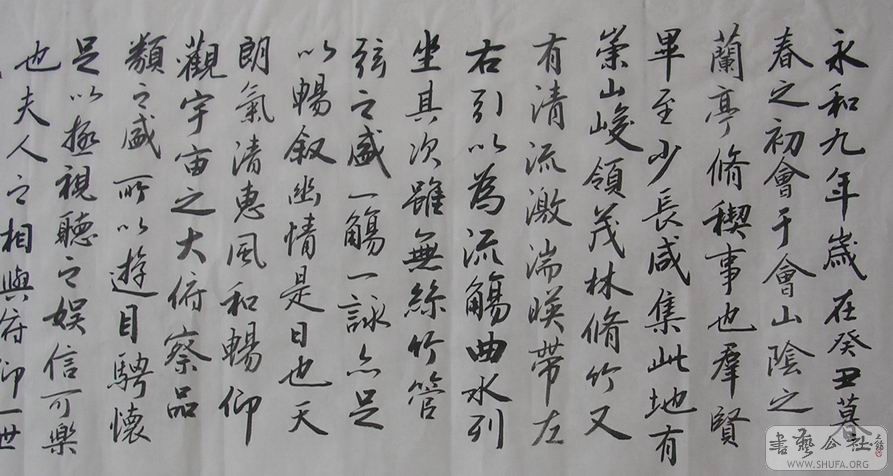 永和九年歲在癸丑暮
春之初會于會山陰之
蘭亭脩稧事也羣賢
畢至少長咸集此地有
崇山峻領茂林脩竹又
有清流激湍暎帶左
右引以為流觴曲水列
坐其次雖無絲竹管
弦之盛一觴一詠亦足
以暢叙幽情是日也天
朗氣清惠風和暢仰
觀宇宙之大俯察品
類之盛所以遊目騁懷
足以極視聽之娛信可樂
也夫人之相與俯仰一世
書藝公社
WWW.SHUFA.ORG